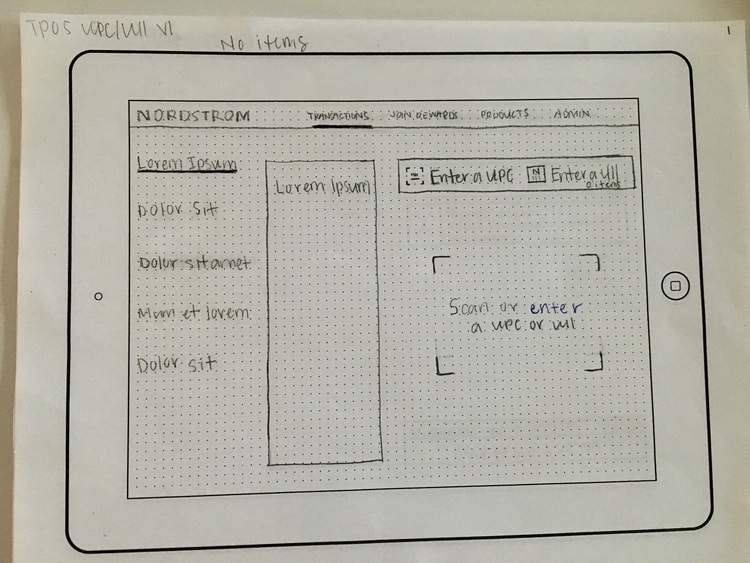 TPOS UPC/UII V1
No items
1
NORDSTROM TRANSACTIONS JOIN REWARDS PRODUCTS ADMIN
Lorem Ipsum
Dolor Sit
Dolor sit amet
Mum et lorem
Dolor sit
Lorem Ipsum
Enter a UPC N Enter a UII
0 items
Scan or enter
a UPC or UII